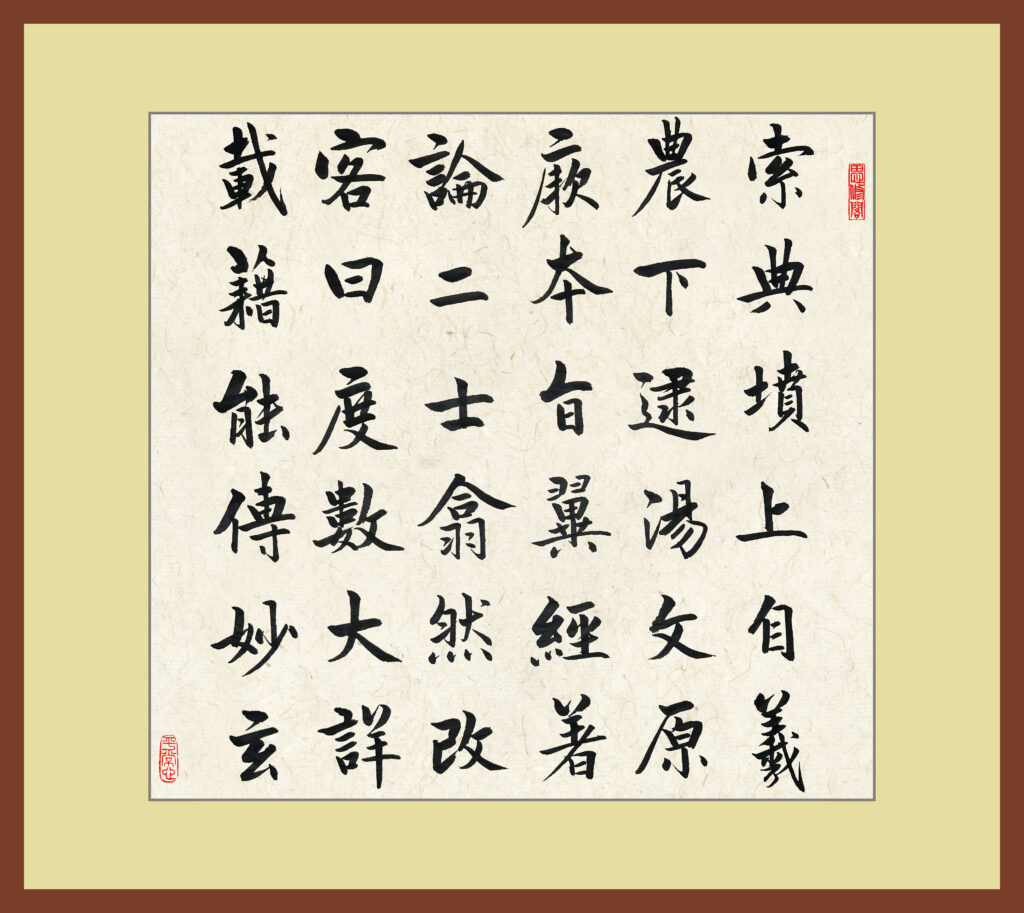 索典墳上自羲
農下逮湯文原
厥本旨翼經著
論二士翕然改
客曰度數大詳
載籍能傳妙玄